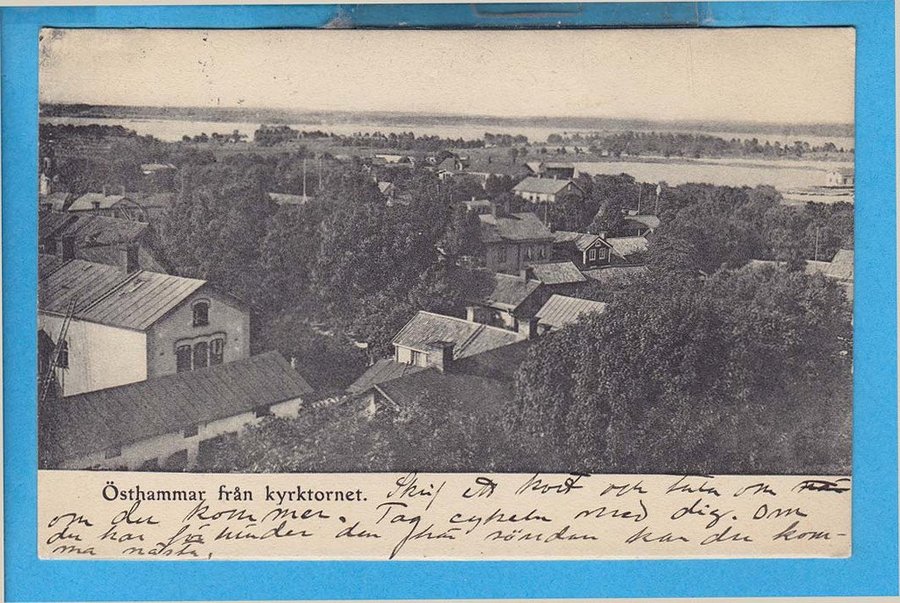 Östhammar från kyrktornet. Skrif ett kort och tala om
om du kommer. Tag cykeln med dig. Om
du har förhinder den här söndan kan du kom-
ma nästa.